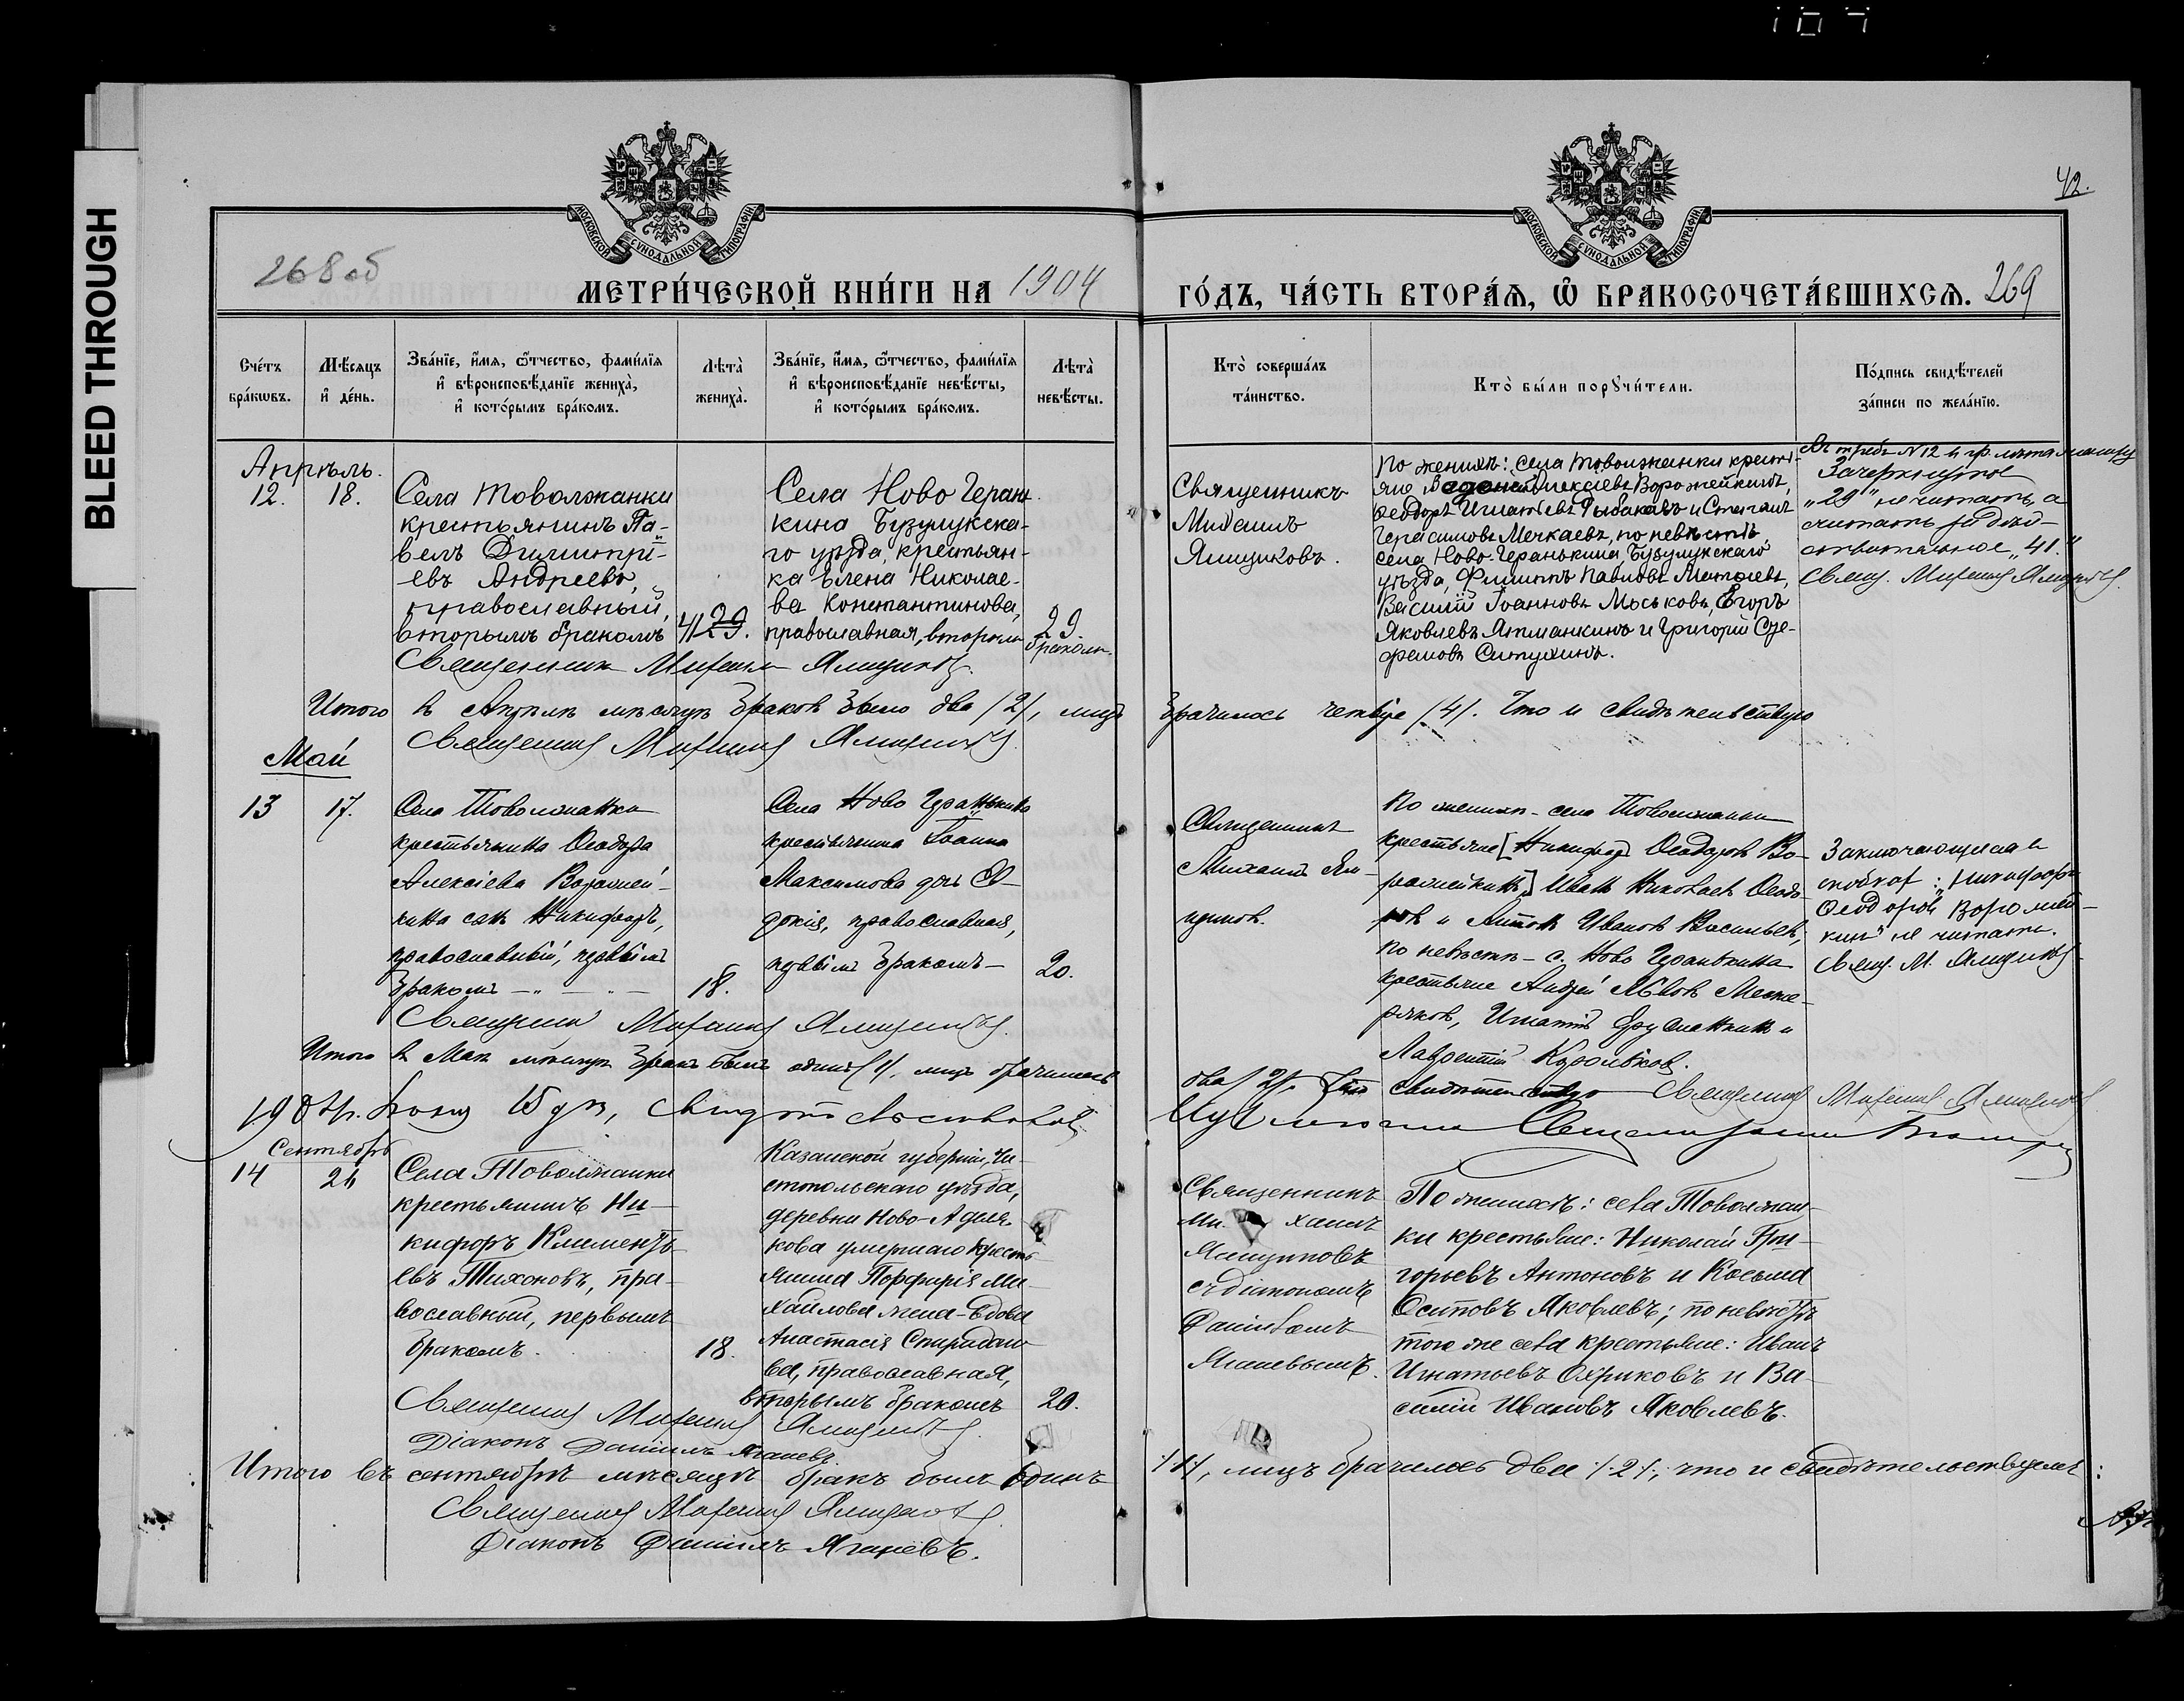 107
BLEED THROUGH
42.
МОСКОВСКОЙ СѴНОДАЛЬНОЙ ТИПОГРАФІИ
МОСКОВСКОЙ СѴНОДАЛЬНОЙ ТИПОГРАФІИ
268 об
МЕТРИ́ЧЕСКОЙ КНИ́ГИ НА 1904
ГО́ДЪ, ЧА́СТЬ ВТОРА́Я, Ѽ БРАКОСОЧЕТА́ВШИХСЯ. 269
Сче́тъ
бра́кѡвъ.
Мѣ́сяцъ
и҆ де́нь.
Зва́нїе, и҆́мя, ѻ҆́тчество, фами́лїя
и҆ вѣроисповѣ́данїе жениха̀,
и҆ кото́рымъ бра́комъ.
Лѣта̀
жениха̀.
Зва́нїе, и҆́мя, ѻ҆́тчество, фами́лїя
и҆ вѣроисповѣ́данїе невѣ́сты,
и҆ кото́рымъ бра́комъ.
Лѣта̀
невѣ́сты.
Кто̀ соверша́лъ
та́инство.
Кто̀ бы́ли порꙋчи́тели.
По́дпись свидѣ́телей
за́писи по жела́нїю.
Апрѣль.
12.
18.
Села Товолжанки
крестьянинъ Па-
велъ Димитрі-
евъ Андреевъ,
православный,
вторымъ бракомъ
41 29.
Села Ново Герань-
кина Бузулукска-
го уѣзда, крестьян-
ка Елена Николае-
ва Константинова,
православная, вторымъ
бракомъ.
29.
Священникъ Михаилъ Ямщиковъ.
Священникъ
Михаилъ
Ямщиковъ.
По женихѣ: села Товолжанки кресть-
яне Алексѣевъ Ворожейкинъ,
Ѳеодоръ Игнатьевъ Рыбаковъ и Степанъ
Герасимовъ Мечкаевъ, по невѣстѣ,
села Ново-Геранькина Бузулукскаго
уѣзда, Филиппъ Павловъ
Василій Іоанновъ Моськовъ, Егоръ
Яковлевъ Атманкинъ и Григорій Е-
фремовъ
N 12
Зачеркнутое
„29" не читать, а
считать
„41."
Свящ. Михаилъ Ямщиковъ.
Итого въ Апрѣлѣ мѣсяцѣ браковъ было два /2/, лицъ
брачилось четверо /4/. Что и свидѣтельствую
Священникъ Михаилъ Ямщиковъ.
Май
13
17.
Села Товолжанки
крестьянина Ѳеодора
Алексіева Ворожей-
кина сынъ Никифоръ,
православный, первымъ
бракомъ
18.
Села Ново Геранькина
крестьянина Іоанна
Максимова дочь Ев-
докія, православная,
первымъ бракомъ
20.
Священникъ
Михаилъ Ям-
щиковъ.
По женихѣ - села Товолжанки
крестьяне [Никифоръ Ѳеодоровъ Во-
рожейкинъ] Иванъ Николаевъ Ѳеодо-
ровъ и Антонъ Ивановъ Васильевъ,
по невѣстѣ - с. Ново Геранькина
крестьяне Андрей Львовъ Меже-
ряковъ, Игнатій и
Лаврентій Корольковъ.
Заключающееся въ
скобках: „Никифоръ
Ѳеодоровъ Ворожей-
кинъ" не читать.
Свящ. М. Ямщиковъ
Священникъ Михаилъ Ямщиковъ.
Итого въ Маѣ мѣсяцѣ бракъ былъ одинъ /1/, лицъ брачилось
два /2/. Что свидѣтельствую Священникъ Михаилъ Ямщиковъ
Сентябрь
14
26
Села Товолжанки
крестьянинъ Ни-
кифоръ Клименть-
евъ Тихоновъ, пра-
вославный, первымъ
бракомъ.
18.
Казанской губерніи, Чи-
стопольскаго уѣзда,
деревни Ново-Аделя-
кова умершаго кресть-
янина Порфирія Ми-
хайлова жена-вдова
Анастасія Спиридоно-
ва, православная,
вторымъ бракомъ
20.
Священникъ
Ми хаилъ
Ямщиковъ
съ діакономъ
Даніиломъ
Яганевымъ.
По женихѣ: села Товолжан-
ки крестьяне: Николай Гри-
горьевъ Антоновъ и Косьма
Осиповъ Яковлевъ; по невѣстѣ
того же села крестьяне: Иванъ
Игнатьевъ Охриковъ и Ва-
силій Ивановъ Яковлевъ.
Священникъ Михаилъ Ямщиковъ.
Діаконъ Даніилъ Яганевъ.
Итого въ сентябрѣ мѣсяцѣ бракъ былъ одинъ
/1/, лицъ брачилось два /2/, что и свидѣтельствуемъ:
Священникъ Михаилъ Ямщиковъ.
Діаконъ Даніилъ Яганевъ.